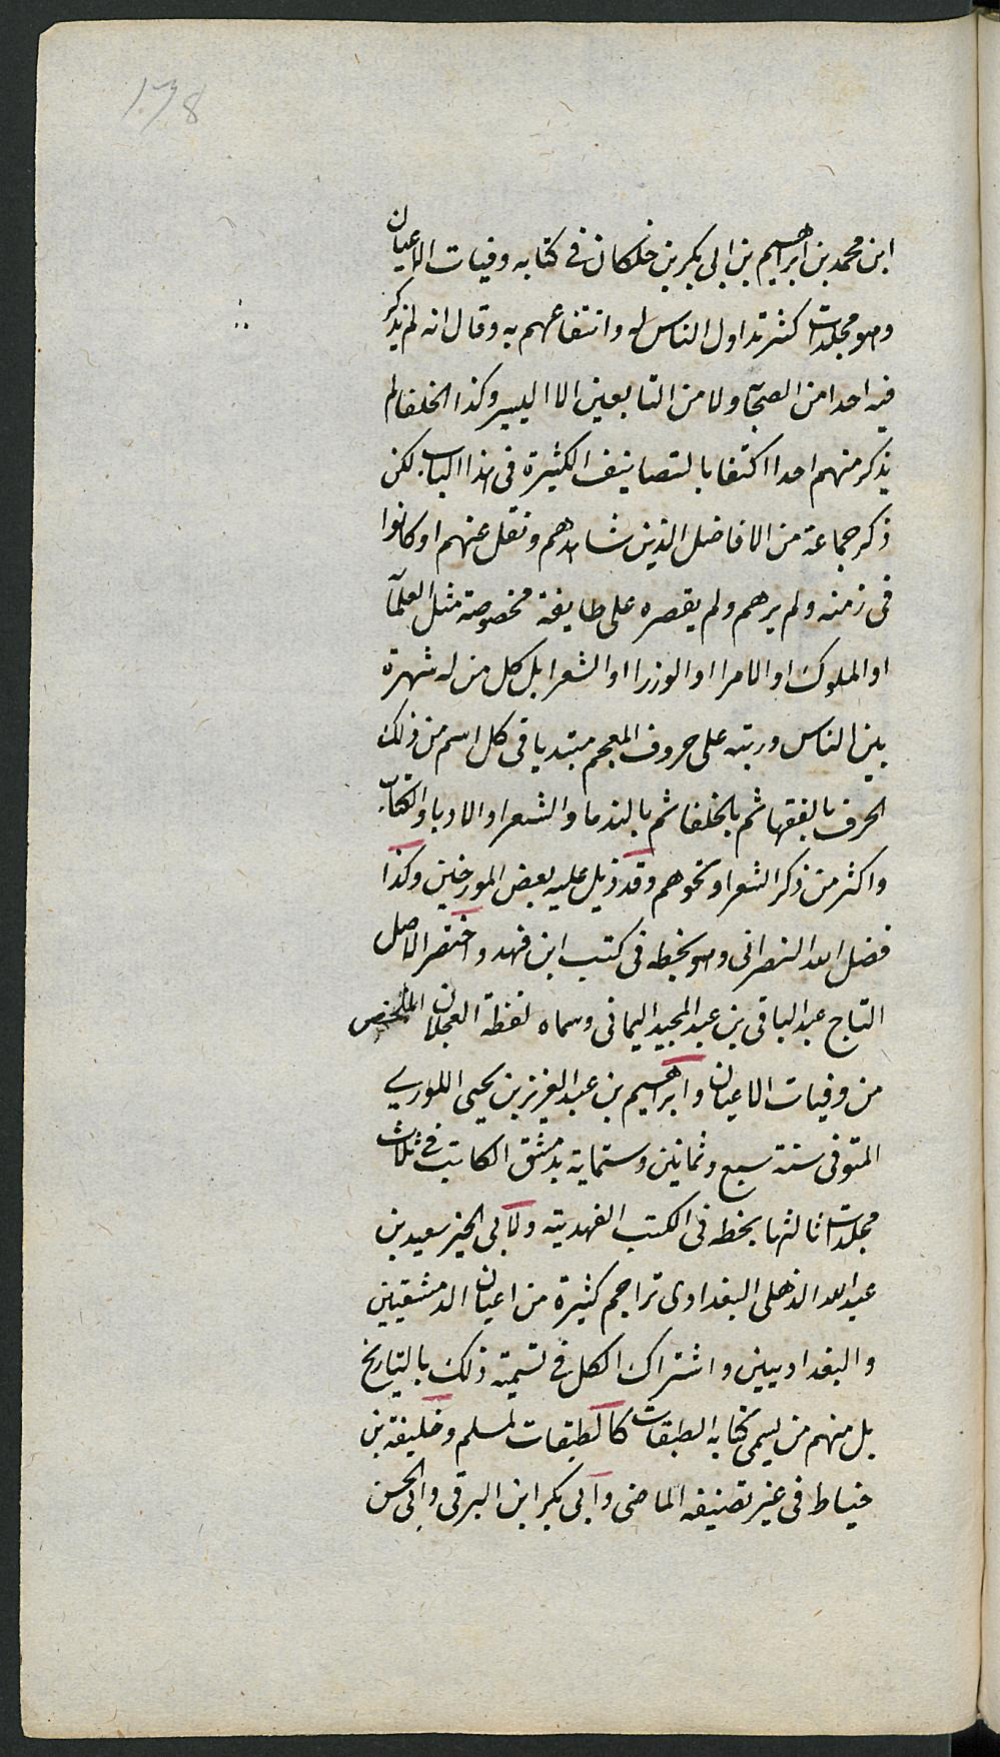 138
ابن محمد بن ابراهيم بن ابى بكر بن خلكان فى كتابه وفيات الاعيان
وهو مجلدات كثر تداول الناس له وانتفاعهم به وقال انه لم يذكر
فيه احدا من الصحآبة ولا من التابعين الا اليسير وكذا الخلفا لم
يذكر منهم احدا اكتفا بالتصانيف الكثيرة فى هذا الباب لكن
ذكر جماعة من الافاضل الذين شاهدهم ونقل عنهم او كانوا
فى زمنه ولم يرهم ولم يقصره على طايفة مخصوصة مثل العلمآ
او الملوك او الامرا او الوزرا او الشعرا بل كل من له شهرة
بين الناس ورتبه على حروف المعجم مبتديا فى كل اسم من ذلك
الحرف بالفقها ثم بالخلفا ثم بالندما والشعرا والادبا والكتاب
واكثر من ذكر الشعرا ونحوهم وقد ذيل عليه بعض المورخين وكذا
فضل الله النصرانى وهو بخطه فى كتب ابن فهد واختصر الاصل
التاج عبد الباقى بن عبد المجيد اليمانى وسماه لقطة العجلان الملخص
من وفيات الاعيان وابراهيم بن عبد العزيز بن يحيى اللورى
المتوفى سنة سبع وثمانين وستماية بدمشق الكاتب فى ثلاث
مجلدات ثالثها بخطه فى الكتب الفهدية ولابى الخير سعيد بن
عبد الله الذهلى البغدادى تراجم كثيرة من اعيان الدمشقيين
والبغداديين واشتراك الكل فى تسمية ذلك بالتاريخ
بل منهم من يسمى كتابه الطبقات كالطبقات لمسلم وخليفة بن
خياط فى غير تصنيفه الماضى وابى بكر ابن البرقى وابى الحسن